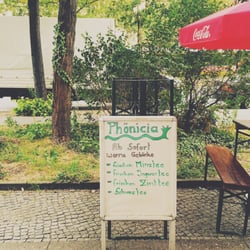 Coca-Cola
Phönicia
Ab Sofort
warme Getränke
- frischen Minztee
- Frischen Ingwertee
- Frischen Zimttee
- Schwarztee